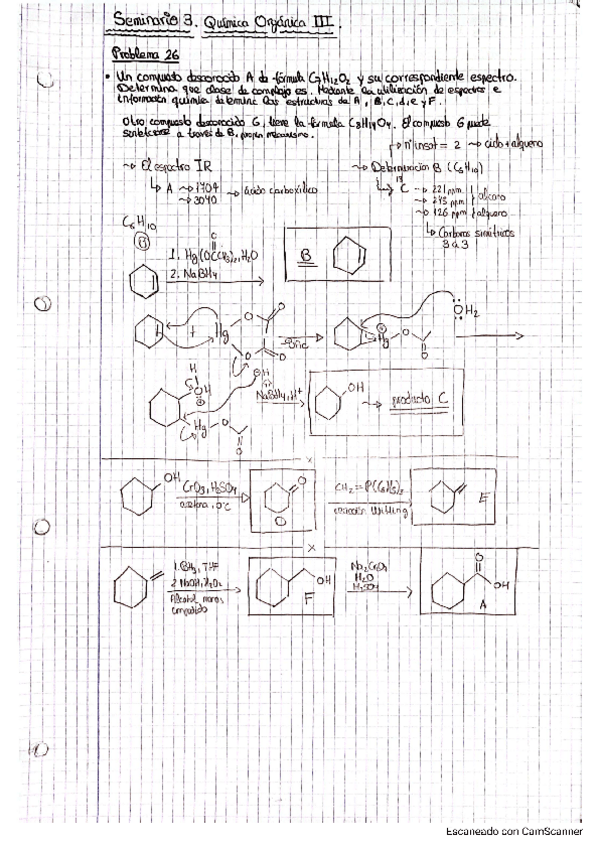 Seminario 3. Química Orgánica III.
Problema 26
• Un compuesto desconocido A de fórmula C7H12O2 y su correspondiente espectro.
Determina que clase de complejo es. Mediante la utilización de espectros e
información química determine las estructuras de A, B, C, d, E y F.
Otro compuesto desconocido G, tiene la fórmula C8H14O4. El compuesto G puede
sintetizarse a través de B, propon mecanismo.
nº insat = 2 ~> ciclo + alqueno
~> El espectro IR
~> Determinación B (C6H10)
A ~> 1704
~> 3040
~> ácido carboxílico
13
C
~> 221 ppm
~> 245 ppm
alcano
~> 126 ppm } alqueno
Carbonos simétricos
3 a 3
C6H10
B
1. Hg(OCCH3)2, H2O
O
2. NaBH4
B
+
Hg
O
O
O
O
Hg
O
O
OH2
H
OH
Hg
O
O
OH
NaBH4, H+
OH
~> producto C
x
OH
CrO3, H2SO4
acetona, 0ºC
O
D
CH2=P(C6H5)3
reacción Wittig
E
x
1. BH3, THF
2. NaOH, H2O2
Alcohol menos
impedido
OH
F
Na2Cr2O7
H2O
H2SO4
O
OH
A
Escaneado con CamScanner